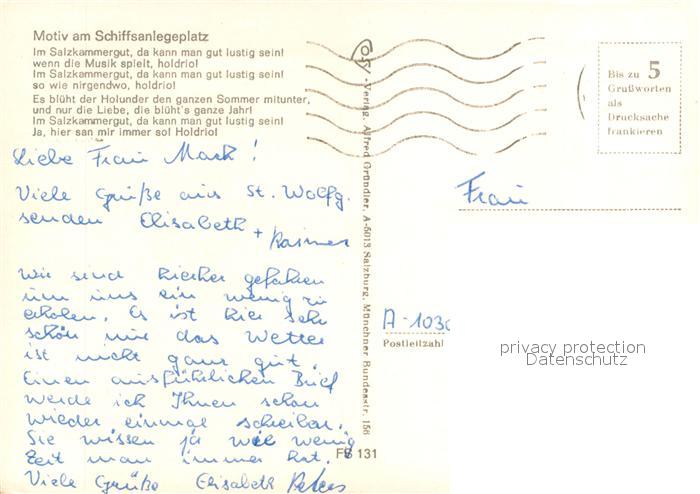 Motiv am Schiffsanlegeplatz
Im Salzkammergut, da kann man gut lustig sein!
wenn die Musik spielt, holdrio!
Im Salzkammergut, da kann man gut lustig sein!
so wie nirgendwo, holdrio!
Es blüht der Holunder den ganzen Sommer mitunter,
und nur die Liebe, die blüht's ganze Jahr!
Im Salzkammergut, da kann man gut lustig sein!
Ja, hier san mir immer so! Holdrio!
Liebe Frau Mack!
Viele Grüße aus St. Wolfg.
senden Elisabeth
+ Rainer
Wir sind hierher gefahren
um uns ein wenig zu
erholen. Es ist hier sehr
schön nur das Wetter
ist nicht ganz gut.
Einen ausführlichen Brief
werde ich Ihnen schon
wieder einmal schreiben.
Sie wissen ja wie wenig
Zeit man immer hat.
Viele Grüße Elisabeth
FB 131
Verlag Alfred Gründler, A-5013 Salzburg, Münchner Bundesstr. 156
Bis zu 5
Grußworten
als
Drucksache
frankieren
Frau
A-1030
Postleitzahl
privacy protection
Datenschutz